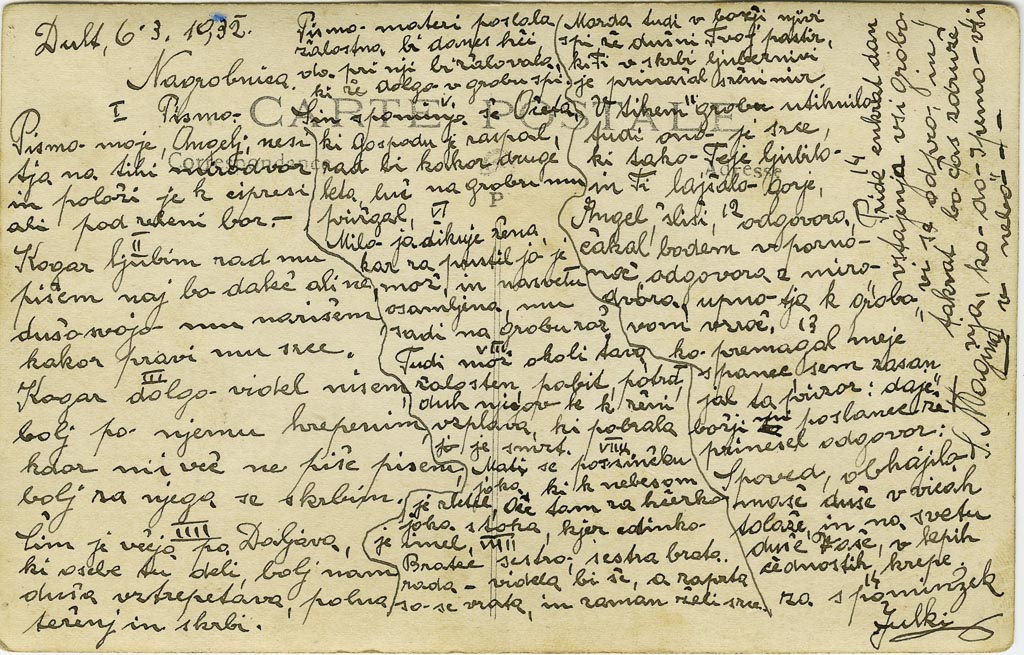 Dult, 6. 3. 1932.
Nagrobnica.
I Pismo
Pismo moje, Angelj, nesi
tja na tihi mirodvor
in položi je k cipresi
ali pod zeleni bor. –
II
Kogar ljubim rad mu
pišem naj bo daleč ali ne
dušo svojo mu narišem
kakor pravi mu srce.
III
Kogar dolgo videl nisem,
bolj po njemu hrepenim,
kdor mi več ne piše pisem,
bolj za njega se skrbim.
IIII
Čim je večja pa Daljava,
ki osebe te deli, bolj nam
duša vztrepetava, polna
teženj in skrbi.
Pismo materi poslala
žalostna bi danes hči,
da pri nji bi žalovala,
ki že dolgo v grobu spi.
V
Sin spominja se Očeta,
ki Gospodu je zaspal,
rad bi kakor druge
leta luč na grobu mu
prižgal, VI
Milo jadikuje žena,
kar zapustil jo je
mož, in na svetu
osamljena, mu
sadi na grobu rož
VII
Tudi mož okoli tava
žalosten, pobit, potrt,
duh njegov k ženi
vzplava, ki pobrala
jo je smrt. VIII
Mati se po sinčku
joka, ki k nebesom
je zletel, Oče tam za hčerko
joka stoka, kjer edinko
je imel, VIIII
Bratec sestro, sestra brata
rada videla bi še, a zaprta
so se vrata, in zaman želi srce.
Morda tudi v božji njivi
spi že dušni Tvoj pastir,
ki Ti v skrbi ljubeznivi
je prinašal sreni mir
V tihem 11 grobu utihnilo
tudi ono je srce,
ki tako Te je ljubilo
in Ti lajšalo gorje,
Angel, sliši, 12 odgovora,
čakal bodem v polno
noč odgovora z miro
dvora, upno tja k grobo
vom zroč. 13
ko premagal me je
spanec sem zasan
jal ta prizor: daje
božji poslanec že
prinesel odgovor:
Spoved, obhajilo
maše duše v vicah
tolaže, in na svetu
duše Vaše, v lepih
čednostih, krepe
15
za spominček
Julki
14
Pride enkrat dan
vstajenja vsi grobo
vi se odpro, in
takrat bo čas združe
nja, ko so Spirno vsi
v nebo – + –
S. Magdag
CARTE POSTALE
Correspondance
Adresse